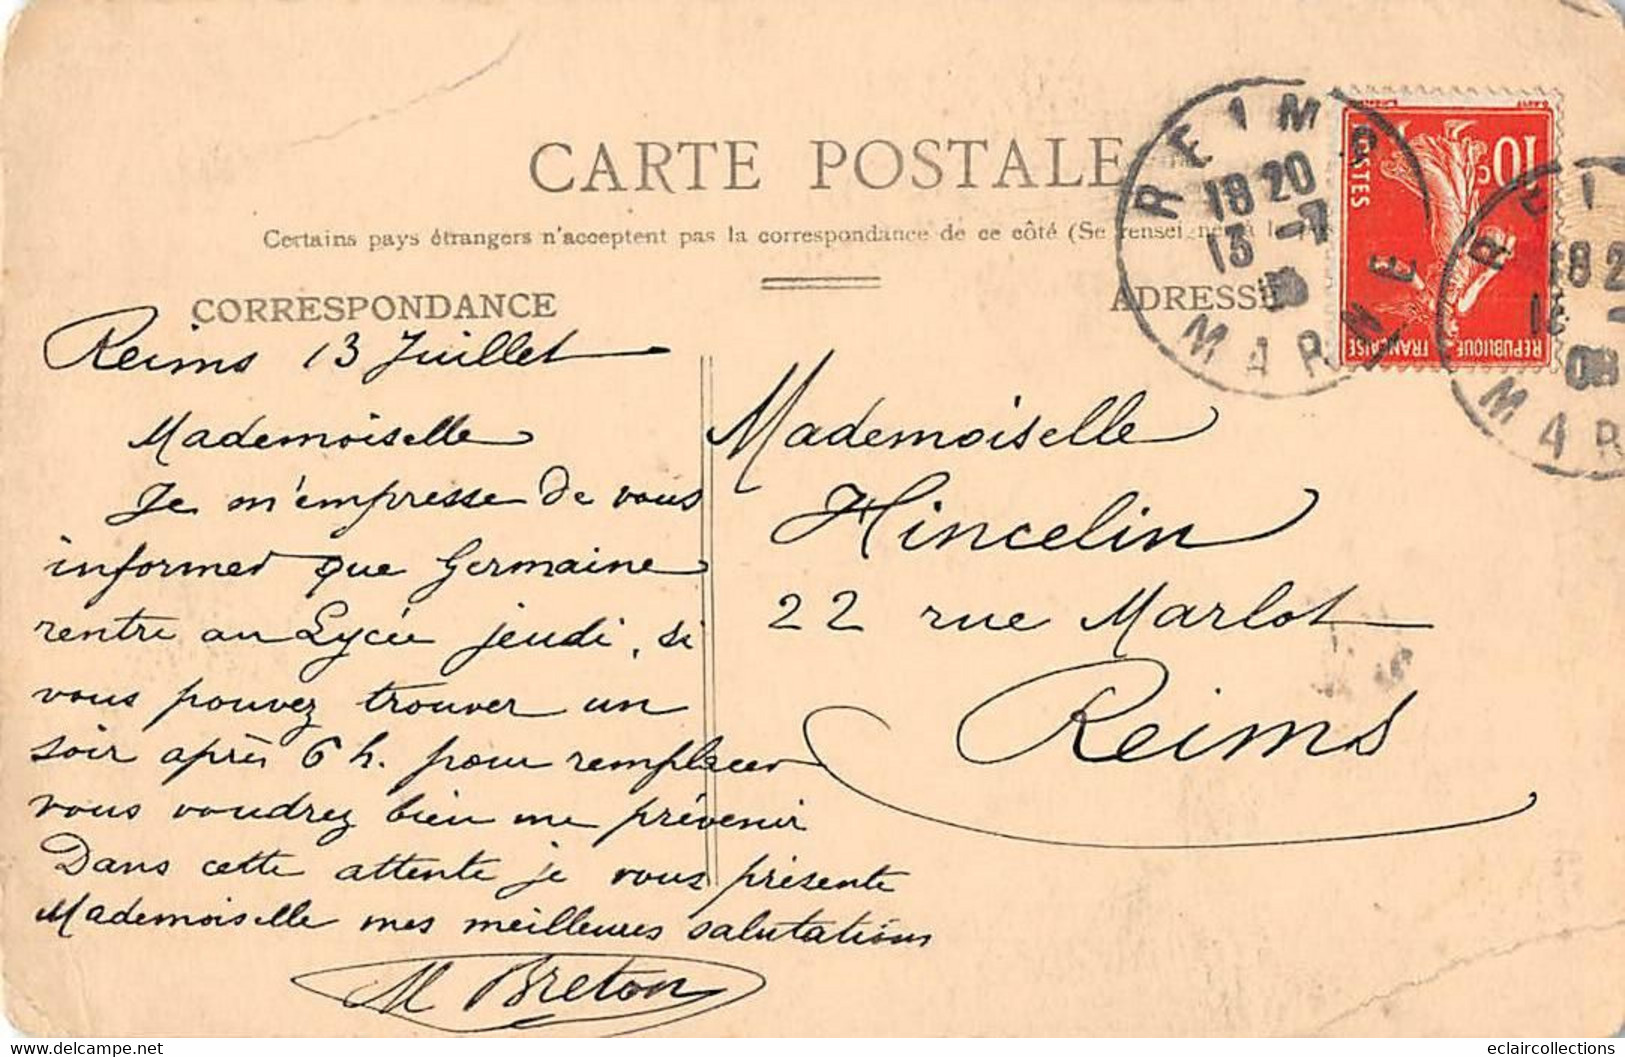 CARTE POSTALE
Certains pays étrangers n'acceptent pas la correspondance de ce côté (Se renseigner à la
CORRESPONDANCE
ADRESSE
Reims 13 Juillet
Mademoiselle
Je m'empresse de vous
informer que Germaine
rentre au Lycée jeudi, si
vous pouvez trouver un
soir après 6 h. pour remplacer
vous voudrez bien me prévenir
Dans cette attente je vous présente
Mademoiselle mes meilleures salutations
M Breton
Mademoiselle
Hincelin
22 rue Marlot
Reims
REIMS
18 20
13 -7
MARNE
10c
POSTES
REPUBLIQUE FRANÇAISE
REI
18 2
13
08
MAR
www.delcampe.net
eclaircollections